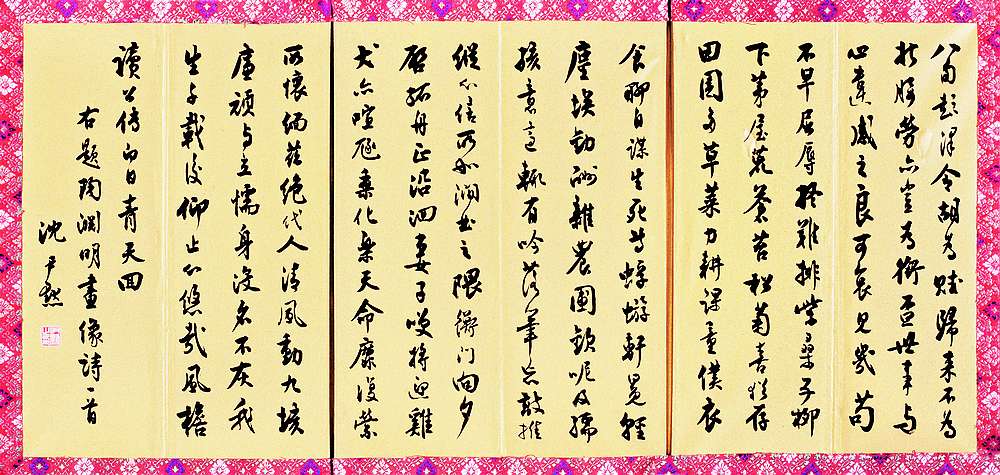 八旬彭澤令胡為賦歸來不為
折腰勞亦豈為銜盃世事與
心違感之良可哀見幾苟
不早屈辱終難排柴桑子柳
下茅屋荒蒼苔松菊喜猶存
田園多草萊力耕課童僕衣
食聊自謀生死等蜉蝣軒冕輕
塵埃勸酬雜農圃款呢及孺
孩意適輒有吟落筆忘敲推
縱心信所如澗之隈衡門向夕
啟孤舟正沿洄妻子笑將迎雞
犬亦喧豗乘化樂天命靡復縈
所懷緬茲絕代人清風動九垓
廉頑與立懦身沒名不灰我
生千載後仰止心悠哉風檐
讀公傳白日青天回
右題陶淵明畫像詩一首
沈尹默